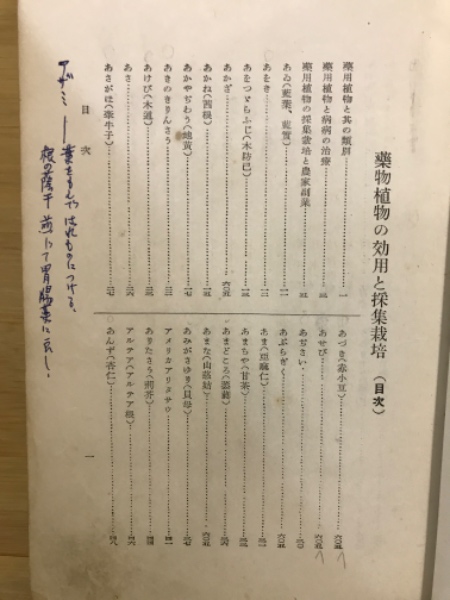 藥物植物の効用と採集栽培（目次）
藥用植物と其の類別……一
藥用植物と病病の治療
藥用植物の採集栽培と農家副業
あゐ（藍葉、藍實）
あをき
あをつゞらふぢ（木防已）
あかざ
あかね（茜根）
あかやぢわう（地黄）
あきのきりんさう
あけび（木通）
あさ
あさがほ（牽牛子）
あづき（赤小豆）
あせび
あぢさい
あぶらぎく
あま（亞麻仁）
あまちや（甘茶）
あまどころ（萎蕤）
あまな（山慈姑）
あみがさゆり（貝母）
アメリカアリタサウ
ありたさう（荊芥）
アルテア（アルテア根）
あんず（杏仁）
目次
一
アザミ—葉をもんで はれものにつける、
根の蔭干 煎じて胃腸薬に良し。